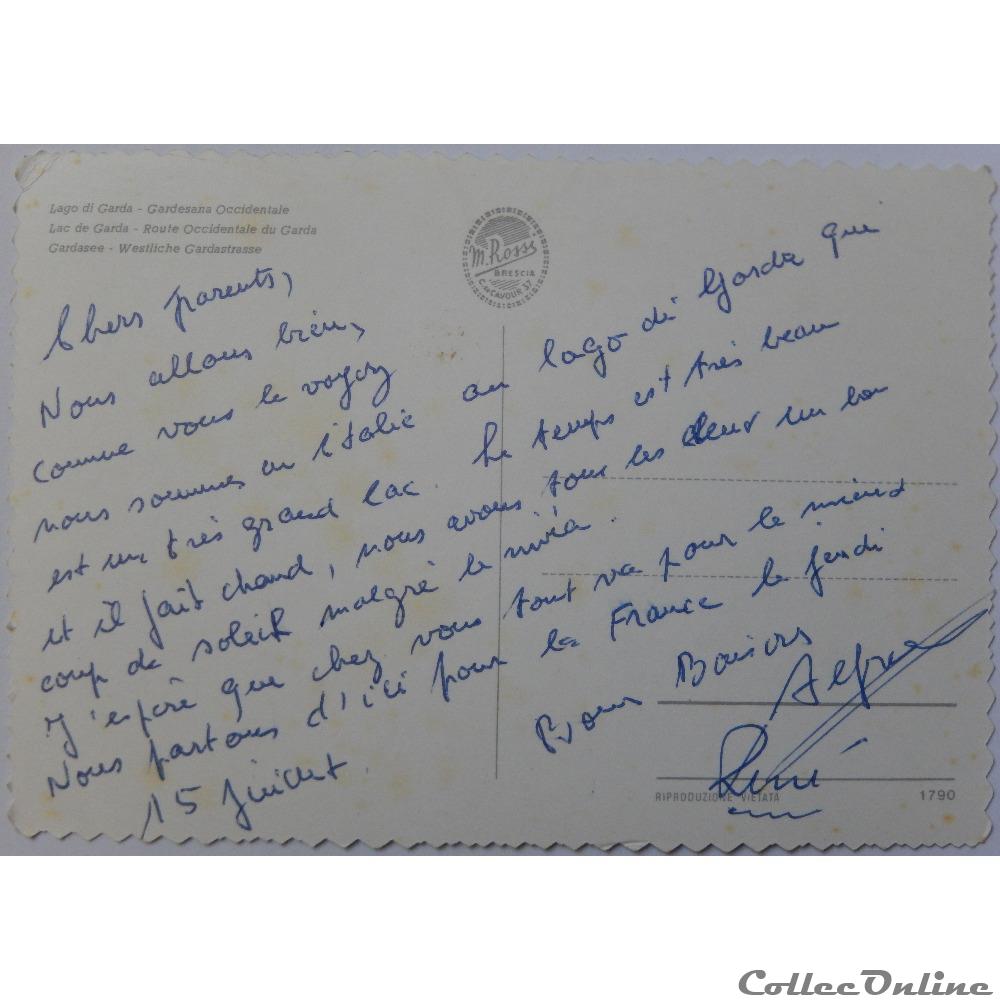 Lago di Garda - Gardesana Occidentale
Lac de Garda - Route Occidentale du Garda
Gardasee - Westliche Gardastrasse
M. Rossi
BRESCIA
C.so CAVOUR 37
Chers parents,
Nous allons bien,
comme vous le voyez
nous sommes en l'italie au lago di Garda que
est un très grand lac. Le temps est très beau
et il fait chaud, nous avons tous les deux un bon
coup de soleil malgré le
J'espère que chez vous tout va pour le mieux
Nous partons d'ici pour la France le jeudi
15 juillet.
Bons Baisers
Alfred
René
RIPRODUZIONE VIETATA
1790
CollecOnline